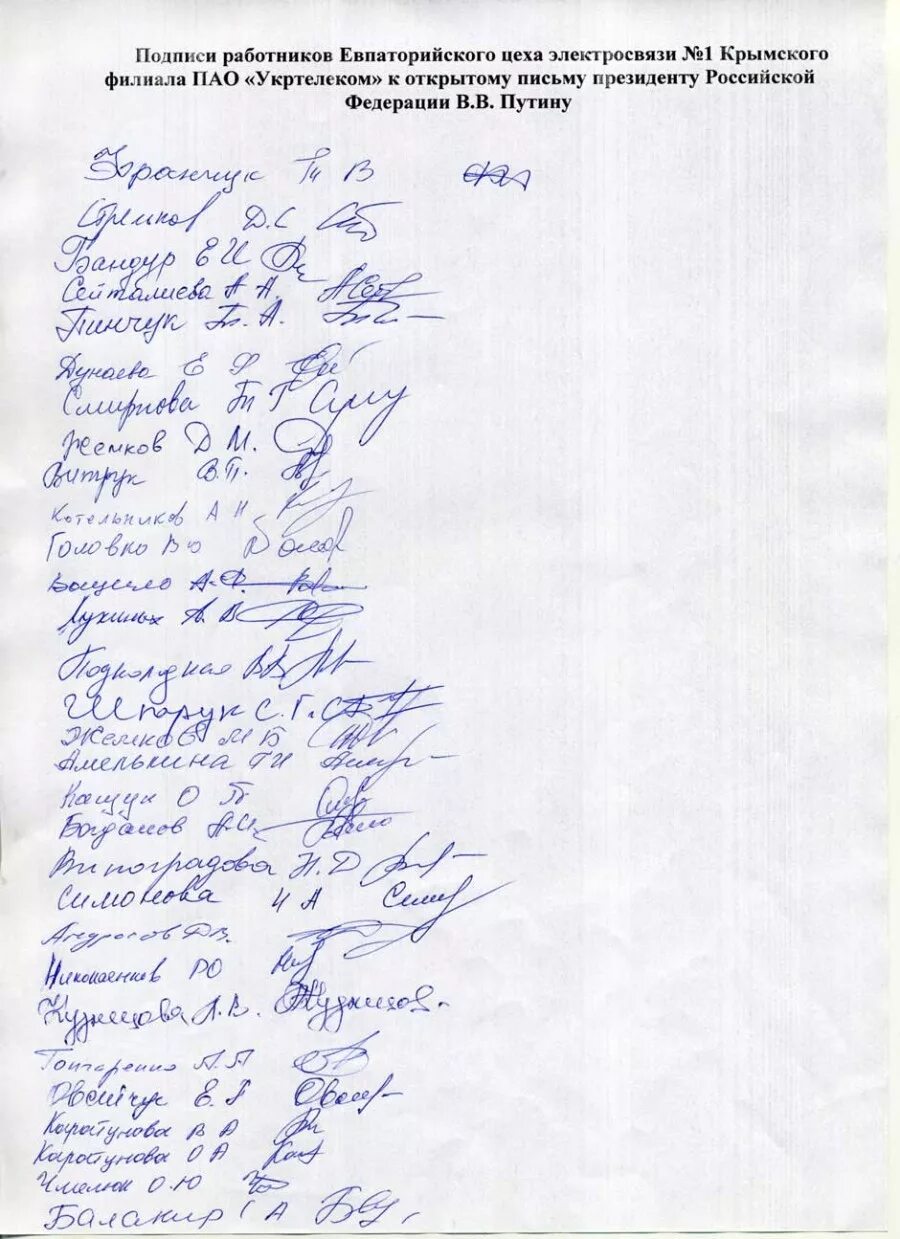 Подписи работников Евпаторийского цеха электросвязи №1 Крымского
филиала ПАО «Укртелеком» к открытому письму президенту Российской
Федерации В.В. Путину
Франчук В
Стремков Д.С
Бандур Е И
Сейталиева А А.
Пинчук Т. А.
Дунаева Е Ф
Смирнова Т Г
Жемков Д М.
Витрук В.П.
Котельников А Н
Головко В Ю
А.Ф.
Лукиных А. В
Подколодная В В
Шпарук С. Г.
Жемков М Б
Амелькина Т И
Кащук О П
Богданов А.И.
Виноградова Н. Д
Симонова И А
Андросов Д.В.
Николаенков Р О
Кузнецова Л. В. Кузнецов
Гончаренко А. П
Овсейчук Е. П
Каратунова В А
Каратунова О А
Чмелюк О.Ю
Балакир А